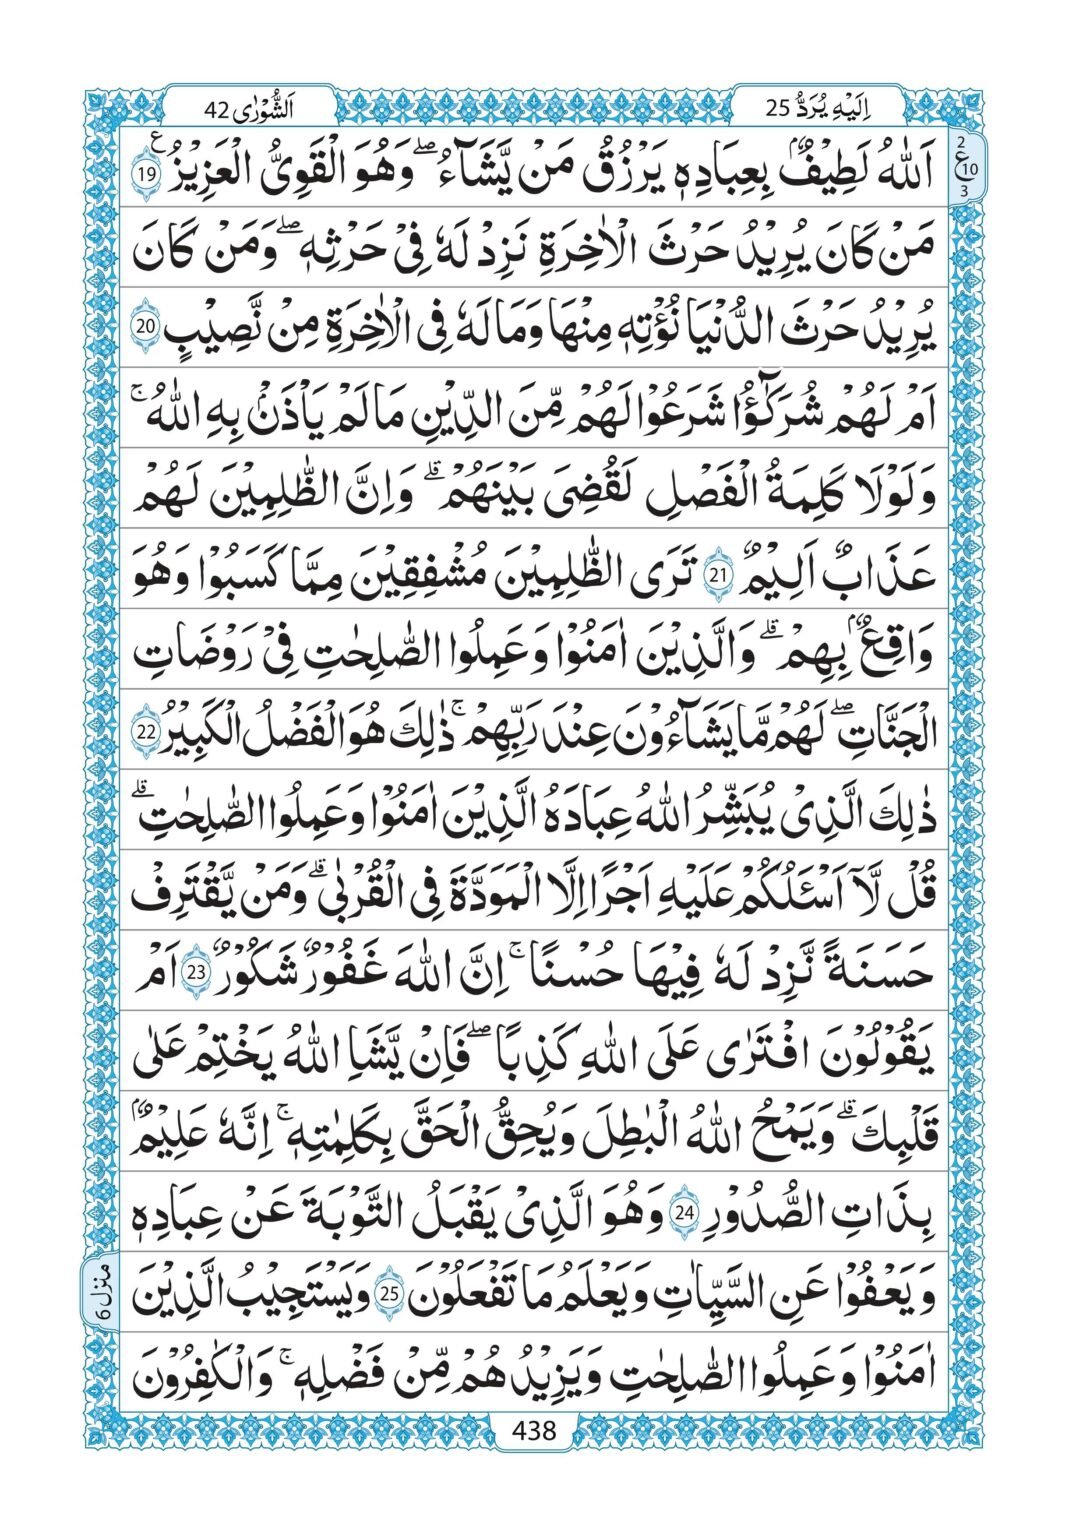 اِلَيْهِ يُرَدُّ 25
اَلشُّوْرٰى 42
2
ع 10
3
اَللّٰهُ لَطِيْفٌۢ بِعِبَادِهٖ يَرْزُقُ مَنْ يَّشَآءُ ۖ وَهُوَ الْقَوِىُّ الْعَزِيْزُ ࣖ 19
مَنْ كَانَ يُرِيْدُ حَرْثَ الْاٰخِرَةِ نَزِدْ لَهٗ فِىْ حَرْثِهٖ ۖ وَمَنْ كَانَ
يُرِيْدُ حَرْثَ الدُّنْيَا نُؤْتِهٖ مِنْهَا وَمَا لَهٗ فِى الْاٰخِرَةِ مِنْ نَّصِيْبٍ 20
اَمْ لَهُمْ شُرَكٰٓؤُا شَرَعُوْا لَهُمْ مِّنَ الدِّيْنِ مَا لَمْ يَاْذَنْۢ بِهِ اللّٰهُ ۚ
وَلَوْلَا كَلِمَةُ الْفَصْلِ لَقُضِىَ بَيْنَهُمْ ۗ وَاِنَّ الظّٰلِمِيْنَ لَهُمْ
عَذَابٌ اَلِيْمٌ 21 تَرَى الظّٰلِمِيْنَ مُشْفِقِيْنَ مِمَّا كَسَبُوْا وَهُوَ
وَاقِعٌۢ بِهِمْ ۗ وَالَّذِيْنَ اٰمَنُوْا وَعَمِلُوا الصّٰلِحٰتِ فِىْ رَوْضَاتِ
الْجَنَّاتِ ۖ لَهُمْ مَّا يَشَآءُوْنَ عِنْدَ رَبِّهِمْ ۚ ذٰلِكَ هُوَ الْفَضْلُ الْكَبِيْرُ 22
ذٰلِكَ الَّذِىْ يُبَشِّرُ اللّٰهُ عِبَادَهُ الَّذِيْنَ اٰمَنُوْا وَعَمِلُوا الصّٰلِحٰتِ ۗ
قُلْ لَّآ اَسْئَلُكُمْ عَلَيْهِ اَجْرًا اِلَّا الْمَوَدَّةَ فِى الْقُرْبٰى ۗ وَمَنْ يَّقْتَرِفْ
حَسَنَةً نَّزِدْ لَهٗ فِيْهَا حُسْنًا ۚ اِنَّ اللّٰهَ غَفُوْرٌ شَكُوْرٌ 23 اَمْ
يَقُوْلُوْنَ افْتَرٰى عَلَى اللّٰهِ كَذِبًا ۖ فَاِنْ يَّشَاِ اللّٰهُ يَخْتِمْ عَلٰى
قَلْبِكَ ۗ وَيَمْحُ اللّٰهُ الْبٰطِلَ وَيُحِقُّ الْحَقَّ بِكَلِمٰتِهٖ ۚ اِنَّهٗ عَلِيْمٌۢ
بِذَاتِ الصُّدُوْرِ 24 وَهُوَ الَّذِىْ يَقْبَلُ التَّوْبَةَ عَنْ عِبَادِهٖ
وَيَعْفُوْا عَنِ السَّيِّاٰتِ وَيَعْلَمُ مَا تَفْعَلُوْنَ 25 وَيَسْتَجِيْبُ الَّذِيْنَ
اٰمَنُوْا وَعَمِلُوا الصّٰلِحٰتِ وَيَزِيْدُهُمْ مِّنْ فَضْلِهٖ ۚ وَالْكٰفِرُوْنَ
منزل 6
438